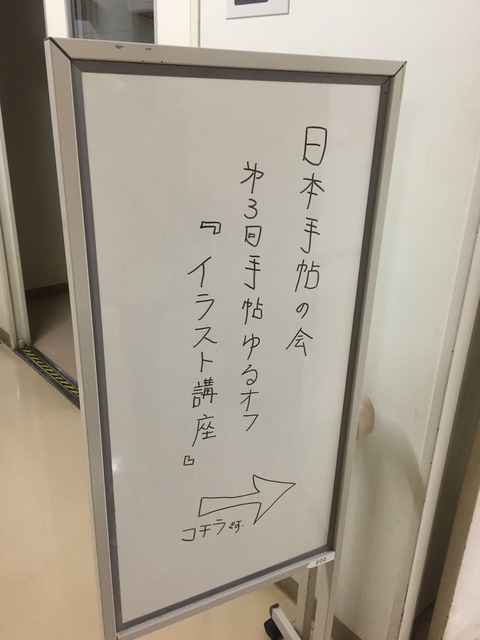 日本手帖の会
第3回手帖ゆるオフ
『イラスト講座』
コチラです
202